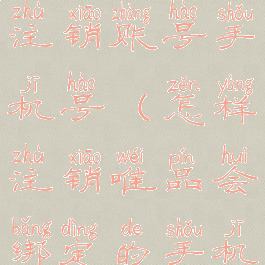 zhù xiāo zhàng hào shǒu
注销账号手
jī hào zěn yàng
机号(怎样
zhù xiāo wéi pǐn huì
注销唯品会
bǎng dìng de shǒu jī
绑定的手机